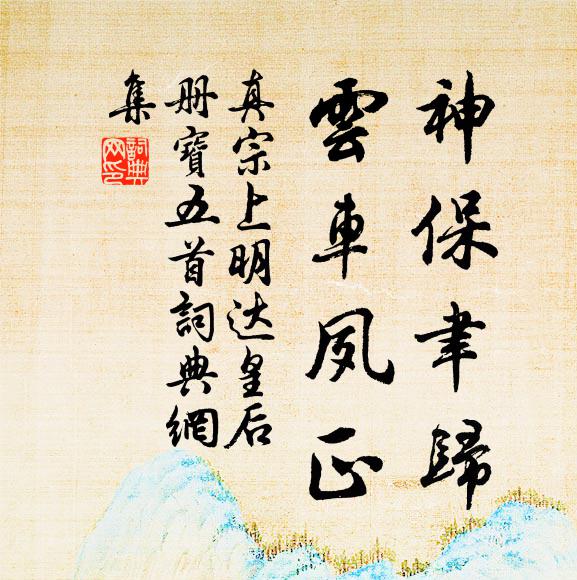 神保聿歸
雲車夙正
真宗上明达皇后
册寶五首詞典網
集
詞典
网印